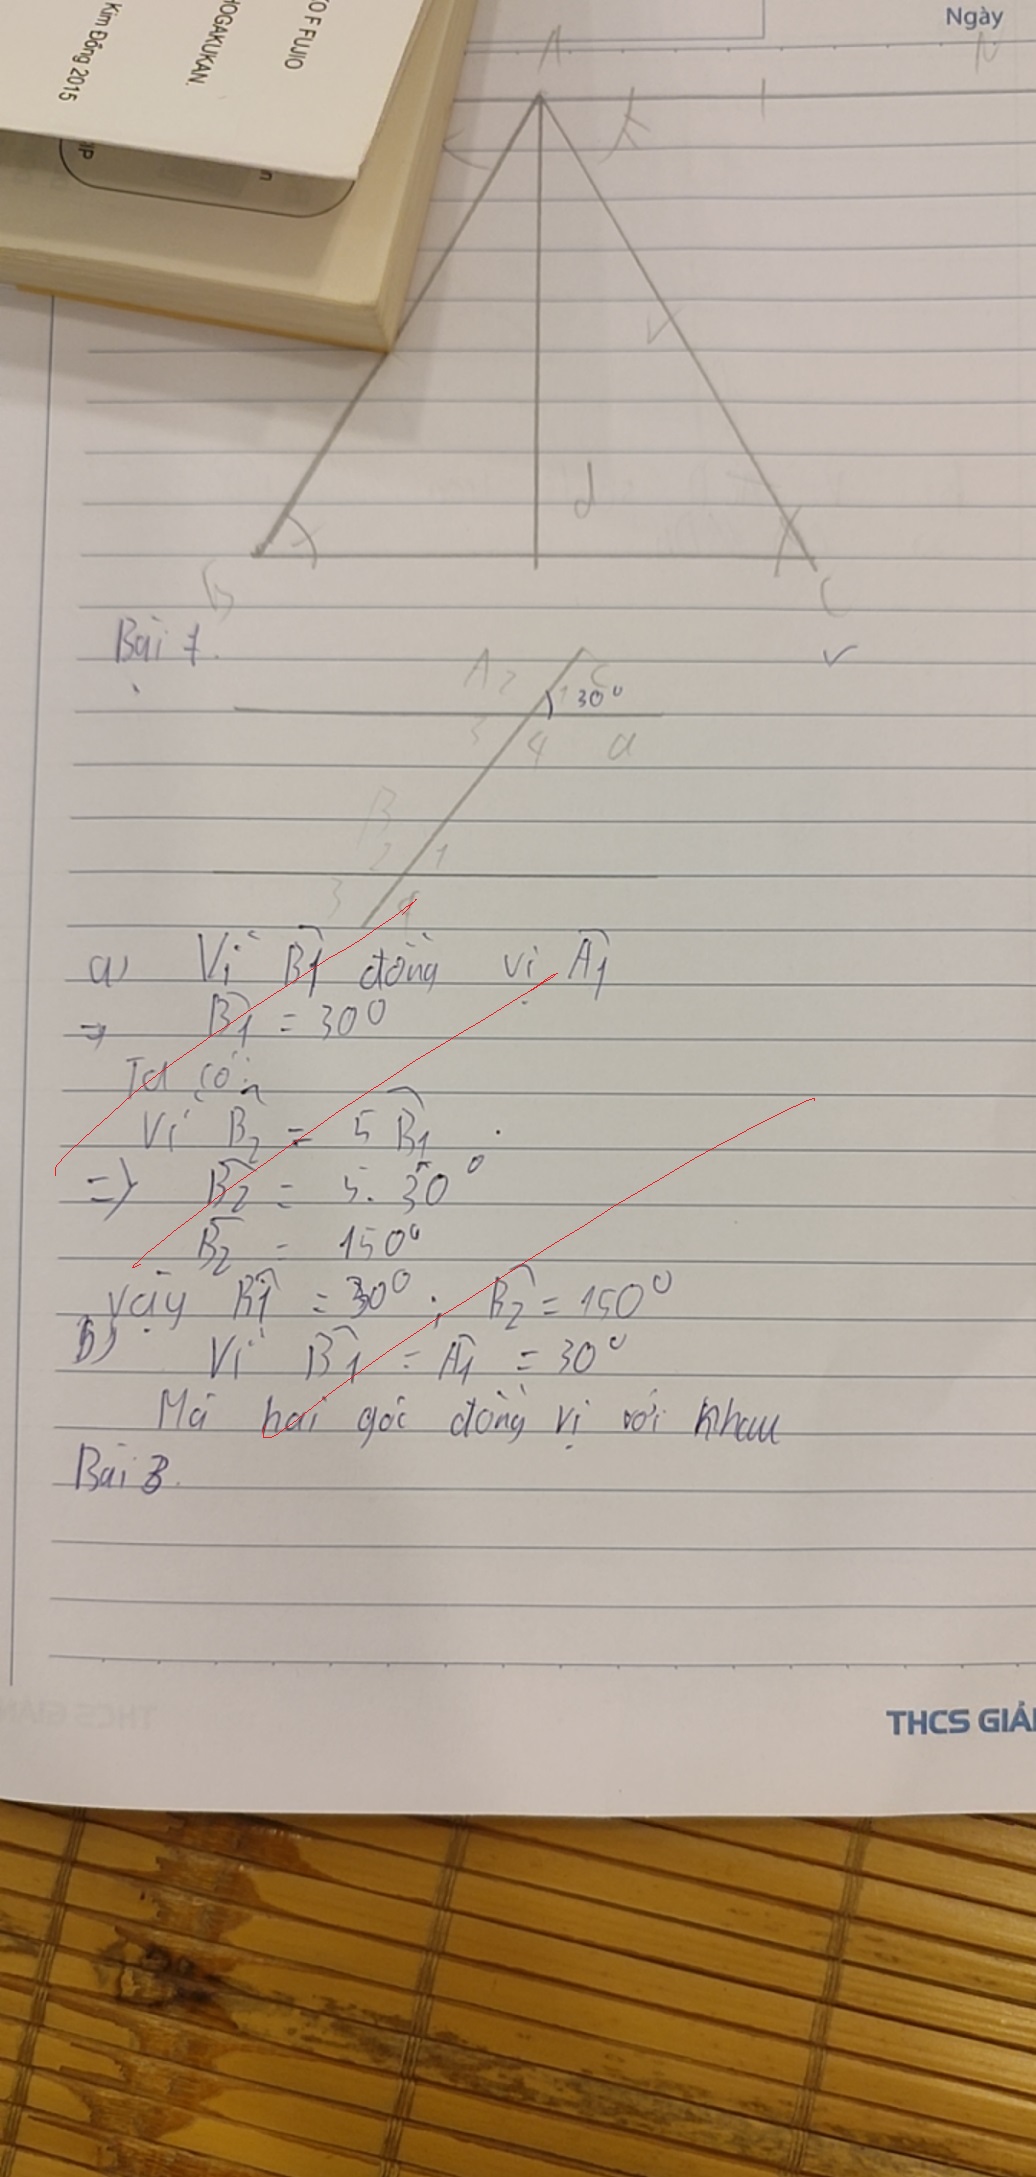 O F FUJIO
HOGAKUKAN.
Kim Đồng 2015
Ngày
A
d
B
C
Bài 7.
A 2
1 30°
3 4 a
B
2 1
3 4
a) Vì B1 đồng vị A1
⇒ B1 = 30°
Ta có:
Vì B2 = 5 B1
=> B2 = 5. 30°
B2 = 150°
Vậy B1 = 30° ; B2 = 150°
b) Vì B1 = A1 = 30°
Mà hai góc đồng vị với nhau
Bài 3.
THCS GIẢ